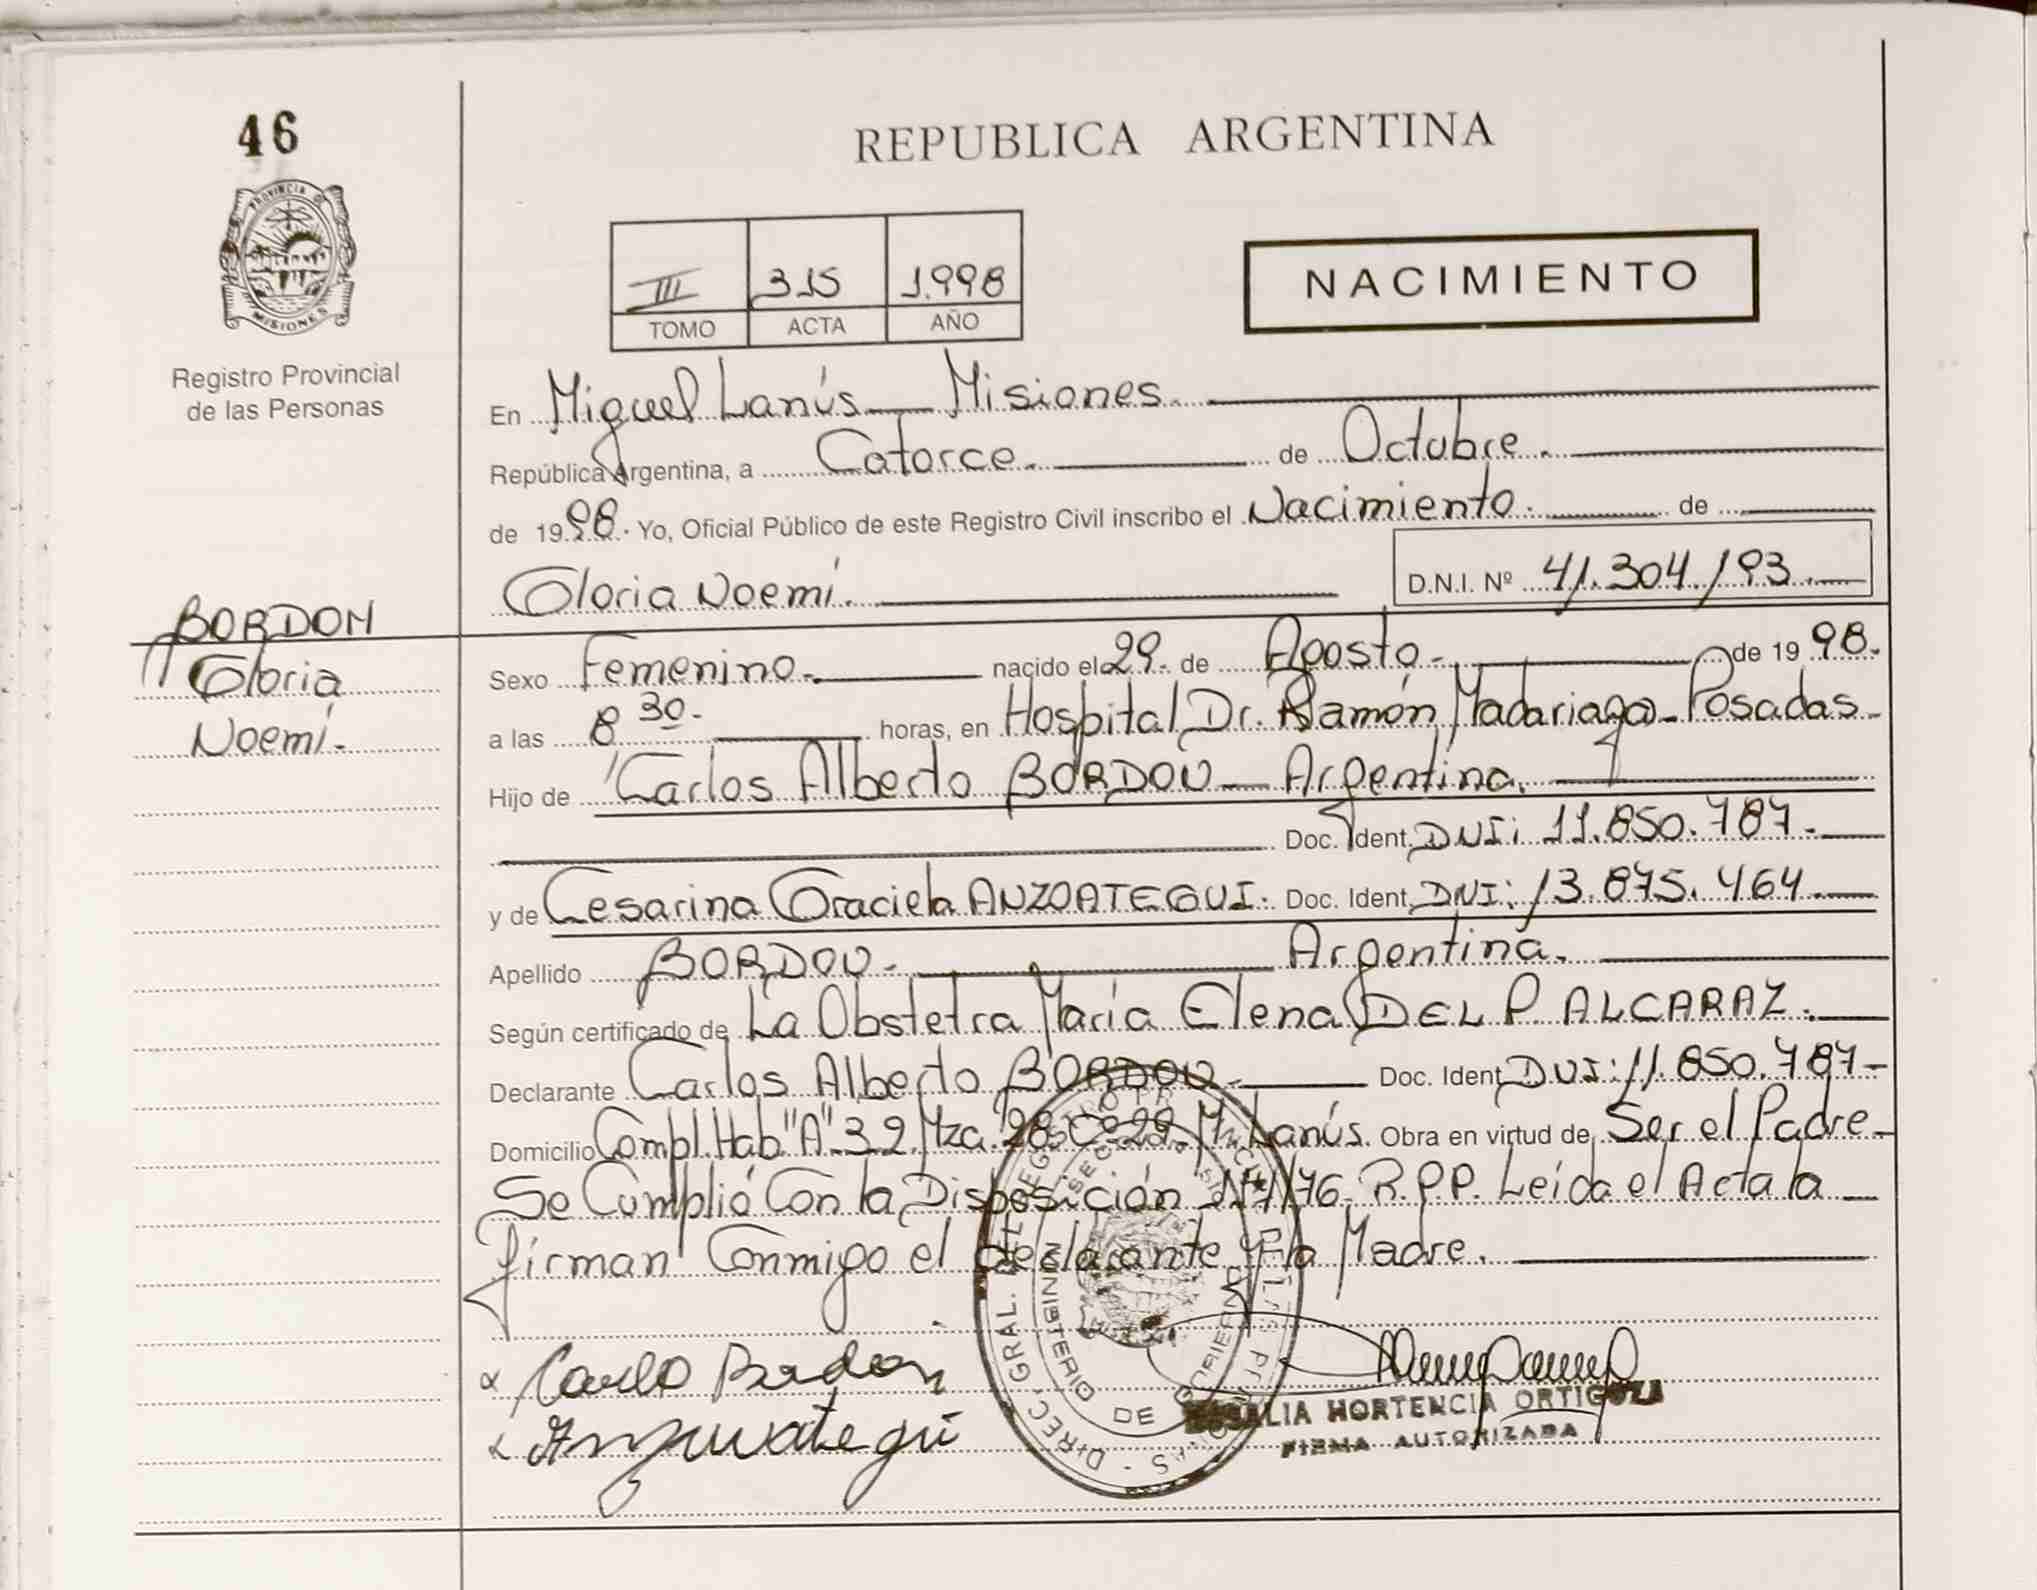 46
REPUBLICA ARGENTINA
PROVINCIA D
MISIONES
Registro Provincial
de las Personas
III 315 1.998
TOMO ACTA AÑO
NACIMIENTO
En Miguel Lanús — Misiones.
República Argentina, a Catorce. de Octubre.
de 1998. Yo, Oficial Público de este Registro Civil inscribo el Nacimiento. de
Gloria Noemí. D.N.I. Nº 41.304.193.
BORDON
Gloria
Noemí.
Sexo Femenino. nacido el 29. de Agosto. de 1998.
a las 8 30. horas, en Hospital Dr. Ramón Madariaga - Posadas.
Hijo de Carlos Alberto BORDON — Argentina.
Doc. Ident. DNI: 11.850.787.
y de Cesarina Graciela ANZOATEGUI. Doc. Ident. DNI: 13.875.464.
Apellido BORDON. Argentina.
Según certificado de La Obstetra María Elena DEL P. ALCARAZ.
Declarante Carlos Alberto BORDON. Doc. Ident. DNI: 11.850.787-
Domicilio Compl. Hab. "A" 3.2 Mza. 28 Lanús. Obra en virtud de Ser el Padre.
Se Cumplió Con la Disposición Nº 1/76. R.P.P. Leída el Acta la
firman Conmigo el declarante y la Madre.
Carlo Bordon
Anzuategui
DIREC. GRAL. DEL REGISTRO
MINISTERIO DE GOBIERNO
HORTENCIA ORTIGOZA
FIRMA AUTORIZADA